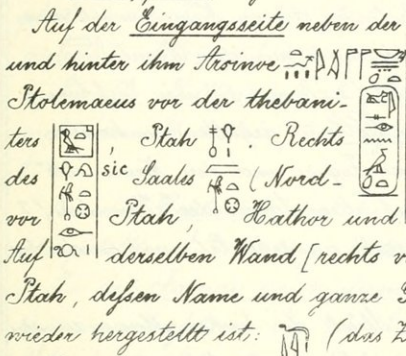 Auf der Eingangsseite neben der
und hinter ihm Arsinoe
Ptolemaeus vor der thebani-
ters , Ptah . Rechts
des sic Saales (Nord-
vor Ptah, Hathor und
Auf derselben Wand [rechts v
Ptah, deſsen Name und ganze
wieder hergestellt ist: (das Z